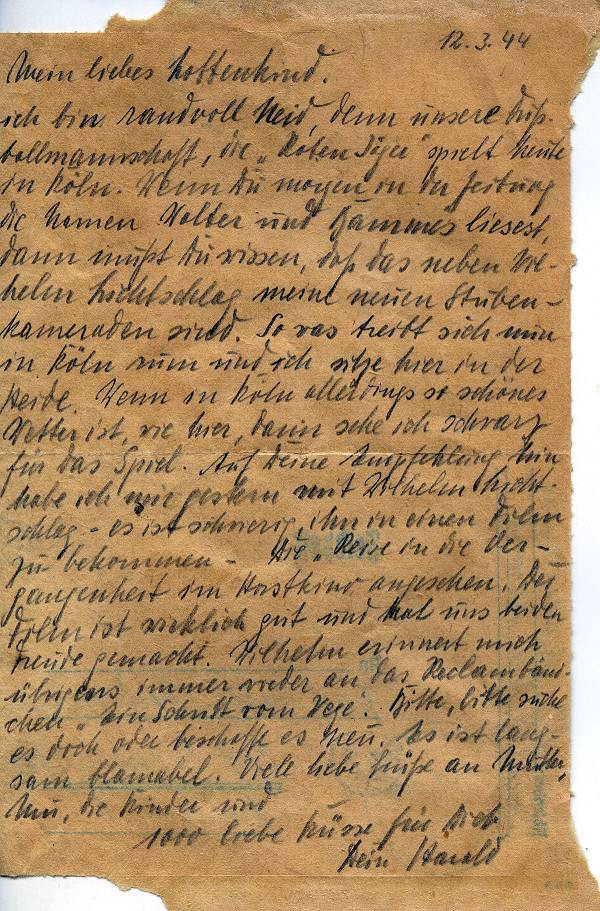 12.3.44
Mein liebes Lottenkind.
ich bin randvoll Neid, denn unsere Fuß-
ballmannschaft, die „Roten Jäger" spielt heute
in Köln. Wenn Du morgen in der Zeitung
die Namen Walter und Hammes liesest,
dann mußt Du wissen, daß das neben Wil-
helm Lichtschlag meine neuen Stuben-
kameraden sind. So was treibt sich nun
in Köln rum und ich sitze hier in der
Heide. Wenn in Köln allerdings so schönes
Wetter ist, wie hier, dann sehe ich schwarz
für das Spiel. Auf Deine Empfehlung hin
habe ich mir gestern mit Wilhelm Licht-
schlag – es ist schwierig, ihn in einen Film
zu bekommen – die „Reise in die Ver-
gangenheit im Horstkino angesehen. Der
Film ist wirklich gut und hat uns beiden
Freude gemacht. Wilhelm erinnert mich
übrigens immer wieder an das Reclambänd-
chen „Ein Schritt vom Wege". Bitte, bitte suche
es doch oder beschaffe es neu. Es ist lang-
sam blamabel. Viele liebe Grüße an Mutter,
die Kinder und
1000 liebe Küsse für Dich
Dein Harald